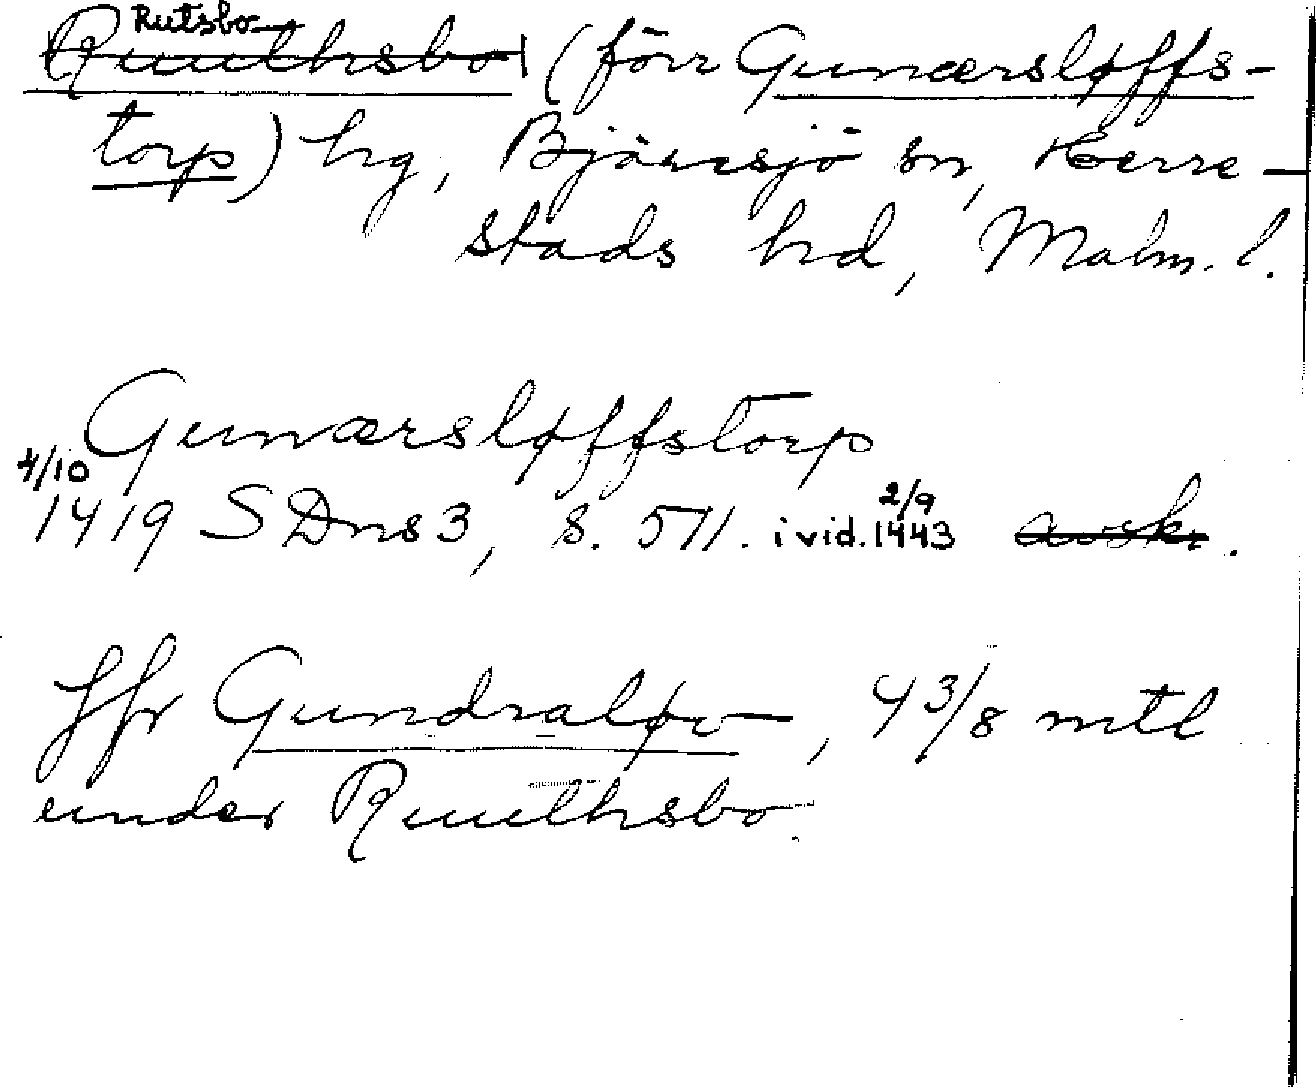 Rutsbo
Ruuthsbo (förr Gunærsløffs-
torp) hg, Bjäresjö sn, Herre-
stads hd, Malm. l.
Gunærsløffstorp
4/10 2/9
1419 SDns3, s. 511. i vid. 1443 avskr.
Jfr Gundraløv, 4 3/8 mtl
under Ruuthsbo.